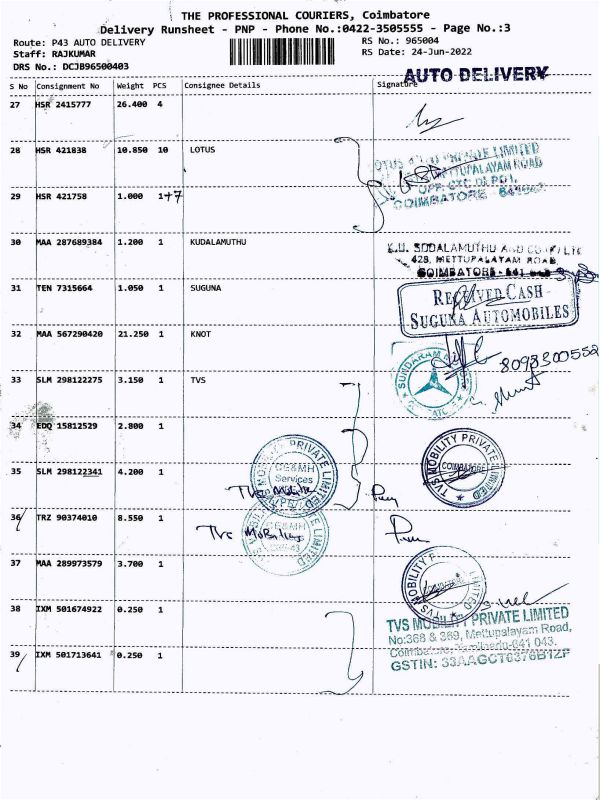 THE PROFESSIONAL COURIERS, Coimbatore
Delivery Runsheet - PNP - Phone No.:0422-3505555 - Page No.:3
Route: P43 AUTO DELIVERY
RS No.: 965004
Staff: RAJKUMAR
RS Date: 24-Jun-2022
DRS No.: DCJB96500403
AUTO DELIVERY
S No Consignment No Weight PCS Consignee Details Signature
27 HSR 2415777 26.400 4
28 HSR 421838 10.850 10 LOTUS
METTUPALAYAM ROAD
COIMBATORE
29 HSR 421758 1.000 1+7
30 MAA 287689384 1.200 1 KUDALAMUTHU
428, METTUPALAYAM ROAD,
COIMBATORE
31 TEN 7315664 1.050 1 SUGUNA
RECEIVED CASH
SUGUNA AUTOMOBILES
32 MAA 567290420 21.250 1 KNOT
8098300552
33 SLM 298122275 3.150 1 TVS
SUNDARAM
34 EDQ 15812529 2.800 1
TVS MOBILITY PRIVATE LIMITED
COIMBATORE
35 SLM 298122341 4.200 1
MOBILITY PRIVATE LIMITED
CE&MH
Services
36 TRZ 90374010 8.550 1
TVS
CE&MH
LIMITED
37 MAA 289973579 3.700 1
TVS MOBILITY PRIVATE LIMITED
38 IXM 501674922 0.250 1
TVS MOBILITY PRIVATE LIMITED
No:368 & 369, Mettupalayam Road,
Coimbatore, Tamilnadu-641 043.
GSTIN: 33AAGCT6376B1ZF
39 IXM 501713641 0.250 1